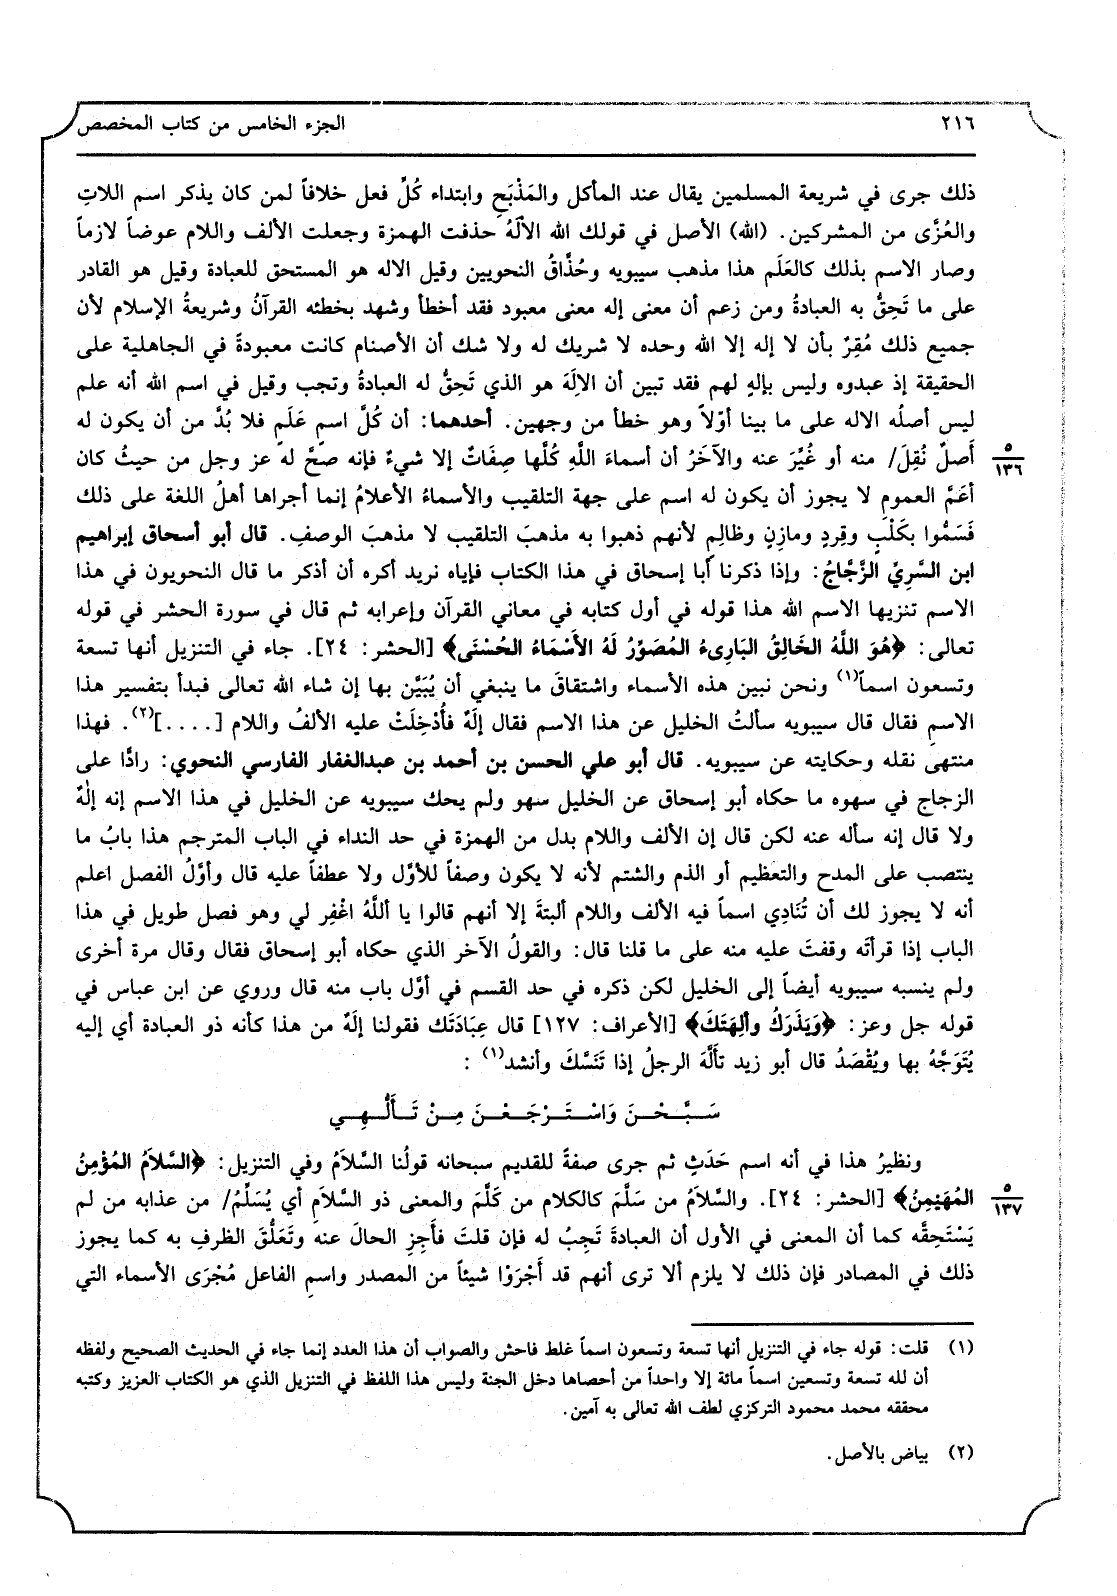 ٢١٦
الجزء الخامس من كتاب المخصص
ذلك جرى في شريعة المسلمين يقال عند المأكل والمَذْبَحِ وابتداء كُلِّ فعل خلافاً لمن كان يذكر اسم اللاتِ
والعُزَّى من المشركين. (الله) الأصل في قولك الله الألَهُ حذفت الهمزة وجعلت الألف واللام عوضاً لازماً
وصار الاسم بذلك كالعَلَم هذا مذهب سيبويه وحُذَّاقُ النحويين وقيل الاله هو المستحق للعبادة وقيل هو القادر
على ما تَحِقُّ به العبادةُ ومن زعم أن معنى إله معنى معبود فقد أخطأ وشهد بخطئه القرآنُ وشريعةُ الإسلام لأن
جميع ذلك مُقِرٌ بأن لا إله إلا الله وحده لا شريك له ولا شك أن الأصنام كانت معبودةً في الجاهلية على
الحقيقة إذ عبدوه وليس بإلهٍ لهم فقد تبين أن الالَهَ هو الذي تَحِقُّ له العبادةُ وتجب وقيل في اسم الله أنه علم
ليس أصلُه الاله على ما بينا أوّلاً وهو خطأ من وجهين. أحدهما: أن كُلَّ اسمٍ عَلَمٍ فلا بُدَّ من أن يكون له
أَصلٌ نُقِلَ/ منه أو غُيِّرَ عنه والآخَرُ أن أسماءَ اللَّهِ كُلَّها صِفَاتٌ إلا شيءٌ فإنه صَحَّ له عز وجل من حيثُ كان
٥
١٣٦
أعَمَّ العموم لا يجوز أن يكون له اسم على جهة التلقيب والأسماءُ الأعلامُ إنما أجراها أهلُ اللغة على ذلك
فَسَمُّوا بكَلْبٍ وقِردٍ ومازِنٍ وظالِمٍ لأنهم ذهبوا به مذهبَ التلقيب لا مذهبَ الوصفِ. قال أبو أسحاق إبراهيم
ابن السَّرِيِّ الزَّجَّاجُ: وإذا ذكرنا أبا إسحاق في هذا الكتاب فإياه نريد أكره أن أذكر ما قال النحويون في هذا
الاسم تنزيها الاسم الله هذا قوله في أول كتابه في معاني القرآن وإعرابه ثم قال في سورة الحشر في قوله
تعالى: ﴿هُوَ اللَّهُ الخَالِقُ البَارِىءُ المُصَوِّرُ لَهُ الأَسْمَاءُ الحُسْنَى﴾ [الحشر: ٢٤]. جاء في التنزيل أنها تسعة
وتسعون اسماً(١) ونحن نبين هذه الأسماء واشتقاقَ ما ينبغي أن يُبَيَّن بها إن شاء الله تعالى فبدأ بتفسير هذا
الاسمِ فقال قال سيبويه سألتُ الخليل عن هذا الاسم فقال إلَهٌ فأُدْخِلَتْ عليه الألفُ واللام [....](٢). فهذا
منتهى نقله وحكايته عن سيبويه. قال أبو علي الحسن بن أحمد بن عبدالغفار الفارسي النحوي: رادًّا على
الزجاج في سهوه ما حكاه أبو إسحاق عن الخليل سهو ولم يحك سيبويه عن الخليل في هذا الاسم إنه إلٰهٌ
ولا قال إنه سأله عنه لكن قال إن الألف واللام بدل من الهمزة في حد النداء في الباب المترجم هذا بابُ ما
ينتصب على المدح والتعظيم أو الذم والشتم لأنه لا يكون وصفاً للأوَّل ولا عطفاً عليه قال وأوَّلُ الفصل اعلم
أنه لا يجوز لك أن تُنَادِي اسماً فيه الألف واللام ألبتةَ إلا أنهم قالوا يا أللَّهُ اغْفِر لي وهو فصل طويل في هذا
الباب إذا قرأتَه وقفتَ عليه منه على ما قلنا قال: والقولُ الآخر الذي حكاه أبو إسحاق فقال وقال مرة أخرى
ولم ينسبه سيبويه أيضاً إلى الخليل لكن ذكره في حد القسم في أوَّل باب منه قال وروي عن ابن عباس في
قوله جل وعز: ﴿وَيَذَرَكُ وألِهَتَكَ﴾ [الأعراف: ١٢٧] قال عِبَادَتَك فقولنا إلَهٌ من هذا كأنه ذو العبادة أي إليه
يُتَوَجَّهُ بها ويُقْصَدُ قال أبو زيد تألَّهَ الرجلُ إذا تَنَسَّكَ وأنشد(١):
سَبَّحْنَ وَاسْتَرْجَعْنَ مِنْ تَأَلُّهِي
ونظيرُ هذا في أنه اسم حَدَثٍ ثم جرى صفةً للقديم سبحانه قولُنا السَّلاَمُ وفي التنزيل: ﴿السَّلاَمُ المُؤْمِنُ
المُهَيْمِنُ﴾ [الحشر: ٢٤]. والسَّلاَمُ من سَلَّمَ كالكلام من كَلَّمَ والمعنى ذو السَّلاَمِ أي يُسَلِّمُ/ من عذابه من لم
٥
١٣٧
يَسْتَحِقَّه كما أن المعنى في الأول أن العبادةَ تَجِبُ له فإن قلتَ فأَجِزِ الحالَ عنه وتَعَلُّقَ الظرفِ به كما يجوز
ذلك في المصادر فإن ذلك لا يلزم ألا ترى أنهم قد أَجْرَوْا شيئاً من المصدر واسمِ الفاعل مُجْرَى الأسماء التي
(١) قلت: قوله جاء في التنزيل أنها تسعة وتسعون اسماً غلط فاحش والصواب أن هذا العدد إنما جاء في الحديث الصحيح ولفظه
أن لله تسعة وتسعين اسماً مائة إلا واحداً من أحصاها دخل الجنة وليس هذا اللفظ في التنزيل الذي هو الكتاب العزيز وكتبه
محققه محمد محمود التركزي لطف الله تعالى به آمين.
(٢) بياض بالأصل.